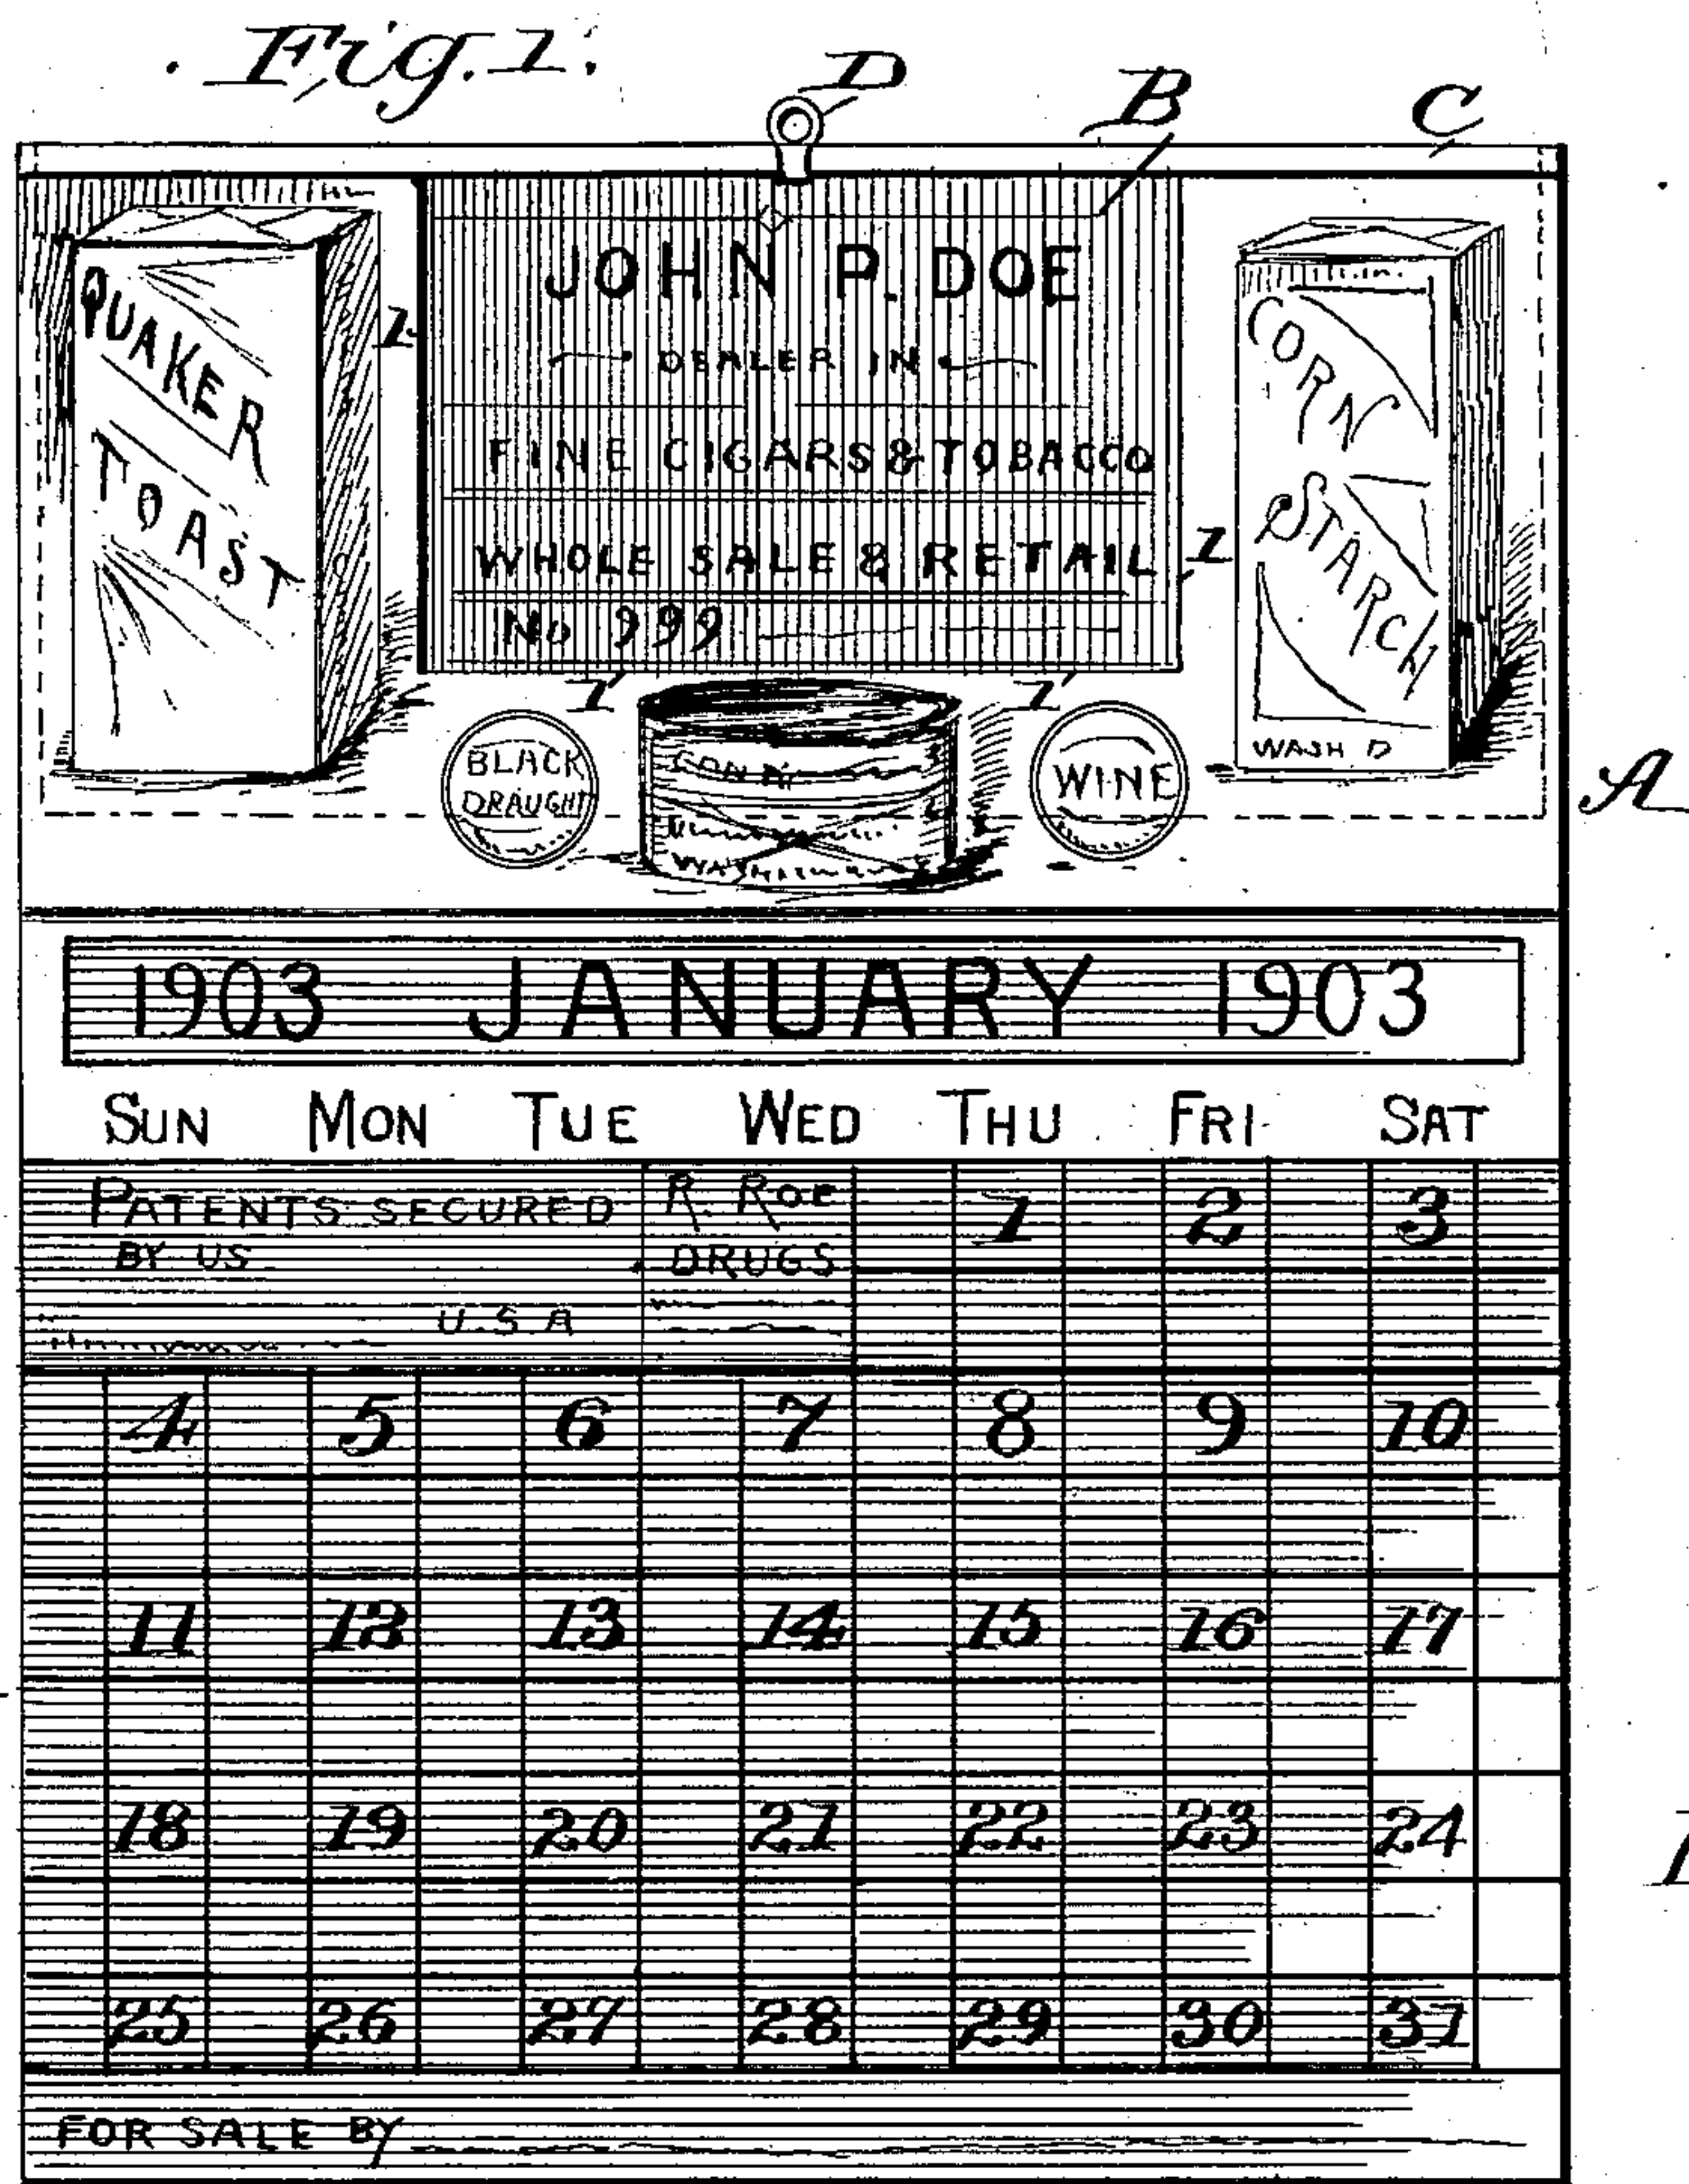 Fig. 1.
D
B
C
QUAKER
TOAST
1
JOHN P. DOE
DEALER IN
FINE CIGARS & TOBACCO
WHOLE SALE & RETAIL
No 999
1
CORN
STARCH
WASH D
1'
1'
BLACK
DRAUGHT
WINE
A
1903 JANUARY 1903
SUN MON TUE WED THU FRI SAT
PATENTS SECURED
BY US
U.S.A
R. ROE
DRUGS
1 2 3
4 5 6 7 8 9 10
11 12 13 14 15 16 17
18 19 20 21 22 23 24
25 26 27 28 29 30 31
FOR SALE BY